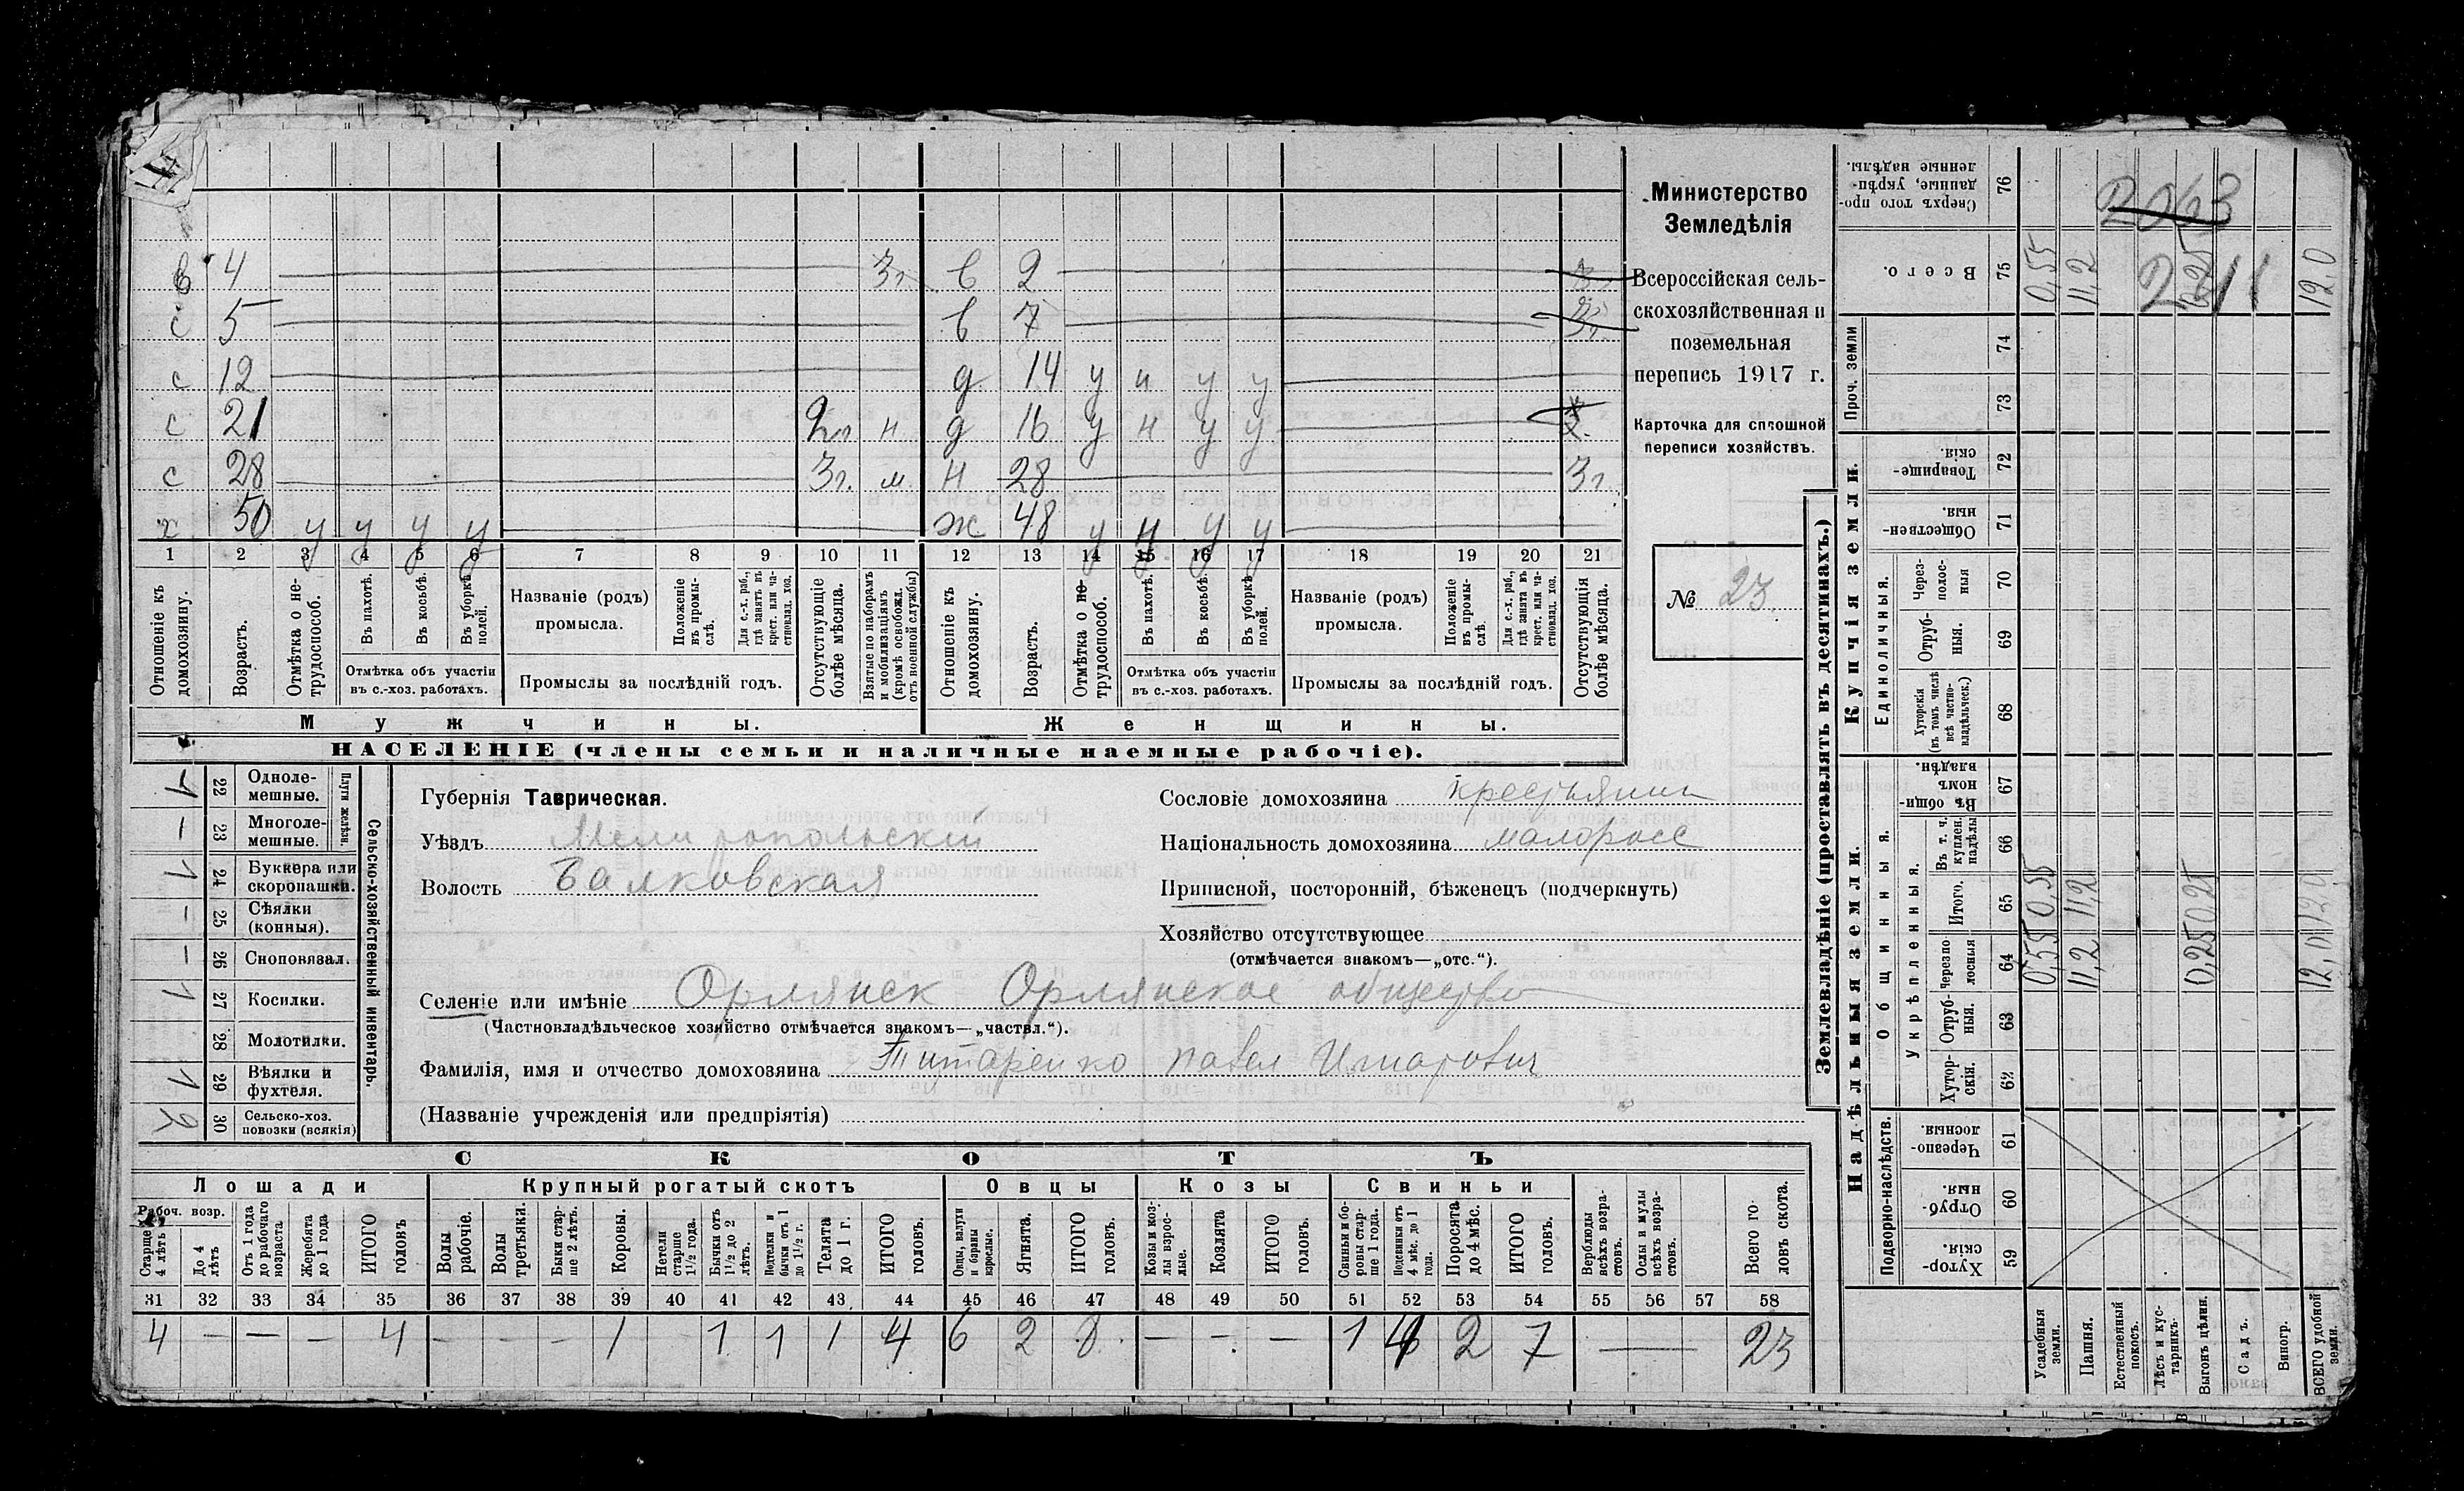 в 4 — 3г. в 2 —
с 5 — в 7 — 3г.
с 12 — д 14 у н у у —
с 21 2г. н д 16 у н у у —
с 28 — 3г. м. н 28 — 3г.
х 50 у у у у — ж 48 у у у у —
1 2 3 4 5 6 7 8 9 10 11 12 13 14 15 16 17 18 19 20 21
Отношеніе къ домохозяину.
Возрастъ.
Отмѣтка о не-трудоспособ.
Въ пахотѣ.
Въ косьбѣ.
Въ уборкѣ полей.
Отмѣтка объ участіи въ с.-хоз. работахъ.
Названіе (родъ) промысла.
Положеніе въ промы-слѣ.
Для с.-х. раб., гдѣ занятъ въ крест. или ча-стновлад. хоз.
Промыслы за послѣдній годъ.
Отсутствующіе болѣе мѣсяца.
Взятые по наборамъ и мобилизаціямъ (кромѣ освобожд. отъ военной службы)
Отношеніе къ домохозяину.
Возрастъ.
Отмѣтка о не-трудоспособ.
Въ пахотѣ.
Въ косьбѣ.
Въ уборкѣ полей.
Отмѣтка объ участіи въ с.-хоз. работахъ.
Названіе (родъ) промысла.
Положеніе въ промы-слѣ.
Для с.-х. раб., гдѣ занята въ крест. или ча-стновлад. хоз.
Промыслы за послѣдній годъ.
Отсутствующія болѣе мѣсяца.
Мужчины.
Женщины.
НАСЕЛЕНІЕ (члены семьи и наличные наемные рабочіе).
Министерство
Земледѣлія
Всероссійская сель-
скохозяйственная и
поземельная
перепись 1917 г.
Карточка для сплошной
переписи хозяйствъ.
№ 23
Сельско-хозяйственный инвентарь.
Плуги желѣзн.
1 22 Одноле-мешные.
— 23 Многоле-мешные.
1 24 Буккера или скоропашки.
— 25 Сѣялки (конныя).
— 26 Сноповязал.
1 27 Косилки.
28 Молотилки.
1 29 Вѣялки и фухтеля.
2 30 Сельско-хоз. повозки (всякія)
Губернія Таврическая.
Уѣздъ Мелитопольскій
Волость Балковская
Сословіе домохозяина крестьянин
Національность домохозяина малоросс
Приписной, посторонній, бѣженецъ (подчеркнуть)
Хозяйство отсутствующее
(отмѣчается знакомъ—„отс.“).
Селеніе или имѣніе Орлянск Орлянское общество
(Частновладѣльческое хозяйство отмѣчается знакомъ—„частвл.“).
Фамилія, имя и отчество домохозяина Титаренко Павел Игнатович
(Названіе учрежденія или предпріятія)
СКОТЪ
Лошади Крупный рогатый скотъ Овцы Козы Свиньи
Рабоч. возр.
Старше 4 лѣтъ
До 4 лѣтъ
Отъ 1 года до рабочаго возраста
Жеребята до 1 года
ИТОГО головъ
Волы рабочіе.
Волы третьяки.
Быки стар-ше 2 лѣтъ.
Коровы.
Нетели старше 1½ года.
Бычки отъ 1½ до 2 лѣтъ.
Подтелки и бычки отъ 1 до 1½ г.
Телята до 1 г.
ИТОГО головъ.
Овцы, валухи и бараны взрослые.
Ягнята.
ИТОГО головъ.
Козы и коз-лы взрос-лые.
Козлята
ИТОГО головъ.
Свиньи и бо-ровы стар-ше 1 года.
Подсвинки отъ 4 мѣс. до 1 года.
Поросята до 4 мѣс.
ИТОГО головъ.
Верблюды всѣхъ возра-стовъ.
Ослы и мулы всѣхъ возра-стовъ.
Всего го-ловъ скота.
31 32 33 34 35 36 37 38 39 40 41 42 43 44 45 46 47 48 49 50 51 52 53 54 55 56 57 58
4 — — — 4 — — — 1 1 1 1 4 6 2 8 — — — 1 4 2 7 — 23
Землевладѣніе (проставлять въ десятинахъ.)
Надѣльныя земли.
Купчія земли.
Проч. земли
Подворно-наслѣдств.
Общинныя.
Укрѣпленныя.
Единоличныя.
Сверхъ того про-данные, укрѣп-ленные надѣлы. 76
Всего. 75 0,55 11,2 0,25 12,0
74
73
Товарище-скія. 72
Обществен-ныя. 71
Через-полос-ныя 70
Отруб-ныя. 69
Хуторскія (въ томъ числѣ всѣ частно-владѣльческ.) 68
Въ общин-номъ владѣн. 67
Въ т. ч. куплен. надѣлы 66
Итого. 65 0,55 11,2 0,25 12,0
Черезпо-лосныя 64 0,55 11,2 0,25 12,0
Отруб-ныя. 63
Хутор-скія. 62
Черезпо-лосныя 61
Отруб-ныя 60
Хутор-скія. 59
Усадебныя земли.
Пашня.
Естественный покосъ.
Лѣсъ и кус-тарникъ.
Выгонъ цѣлин.
Садъ.
Виногр.
ВСЕГО удобной земли.
2063
2211